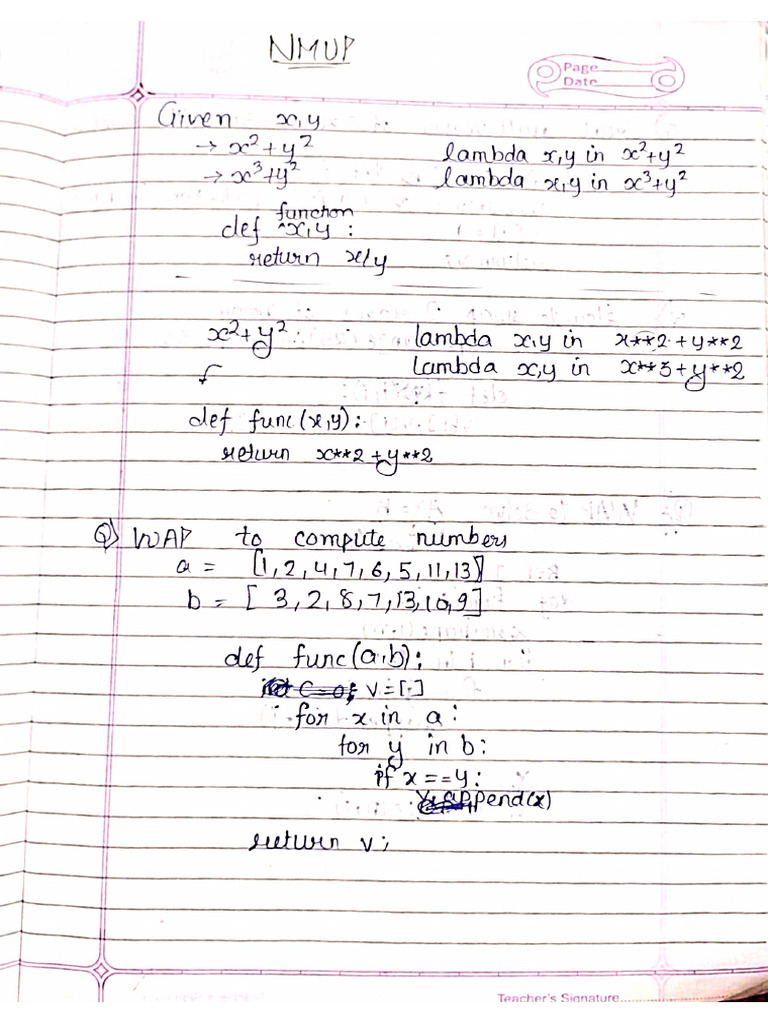 NMUP
Page
Date
Given x,y
→ x²+y² lambda x,y in x²+y²
→ x³+y² lambda x,y in x³+y²
function
def ^x,y :
return x/y
x²+y² lambda x,y in x**2+y**2
f lambda x,y in x**3+y**2
def func(x,y):
return x**2+y**2
Q) WAP to compute numbers
a = [1,2,4,7,6,5,11,13]
b = [3,2,8,7,13,10,9]
def func(a,b):
C=0; V=[.]
for x in a:
for y in b:
if x==y:
V.append(x)
return v;
Teacher's Signature